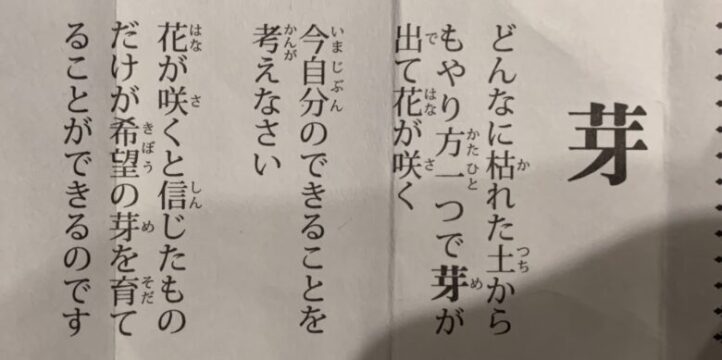 芽
どんなに枯れた土から
もやり方一つで芽が
出て花が咲く
今自分のできることを
考えなさい
花が咲くと信じたもの
だけが希望の芽を育て
ることができるのです